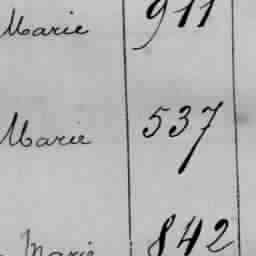 Marie 911
Marie 537
Marie 842